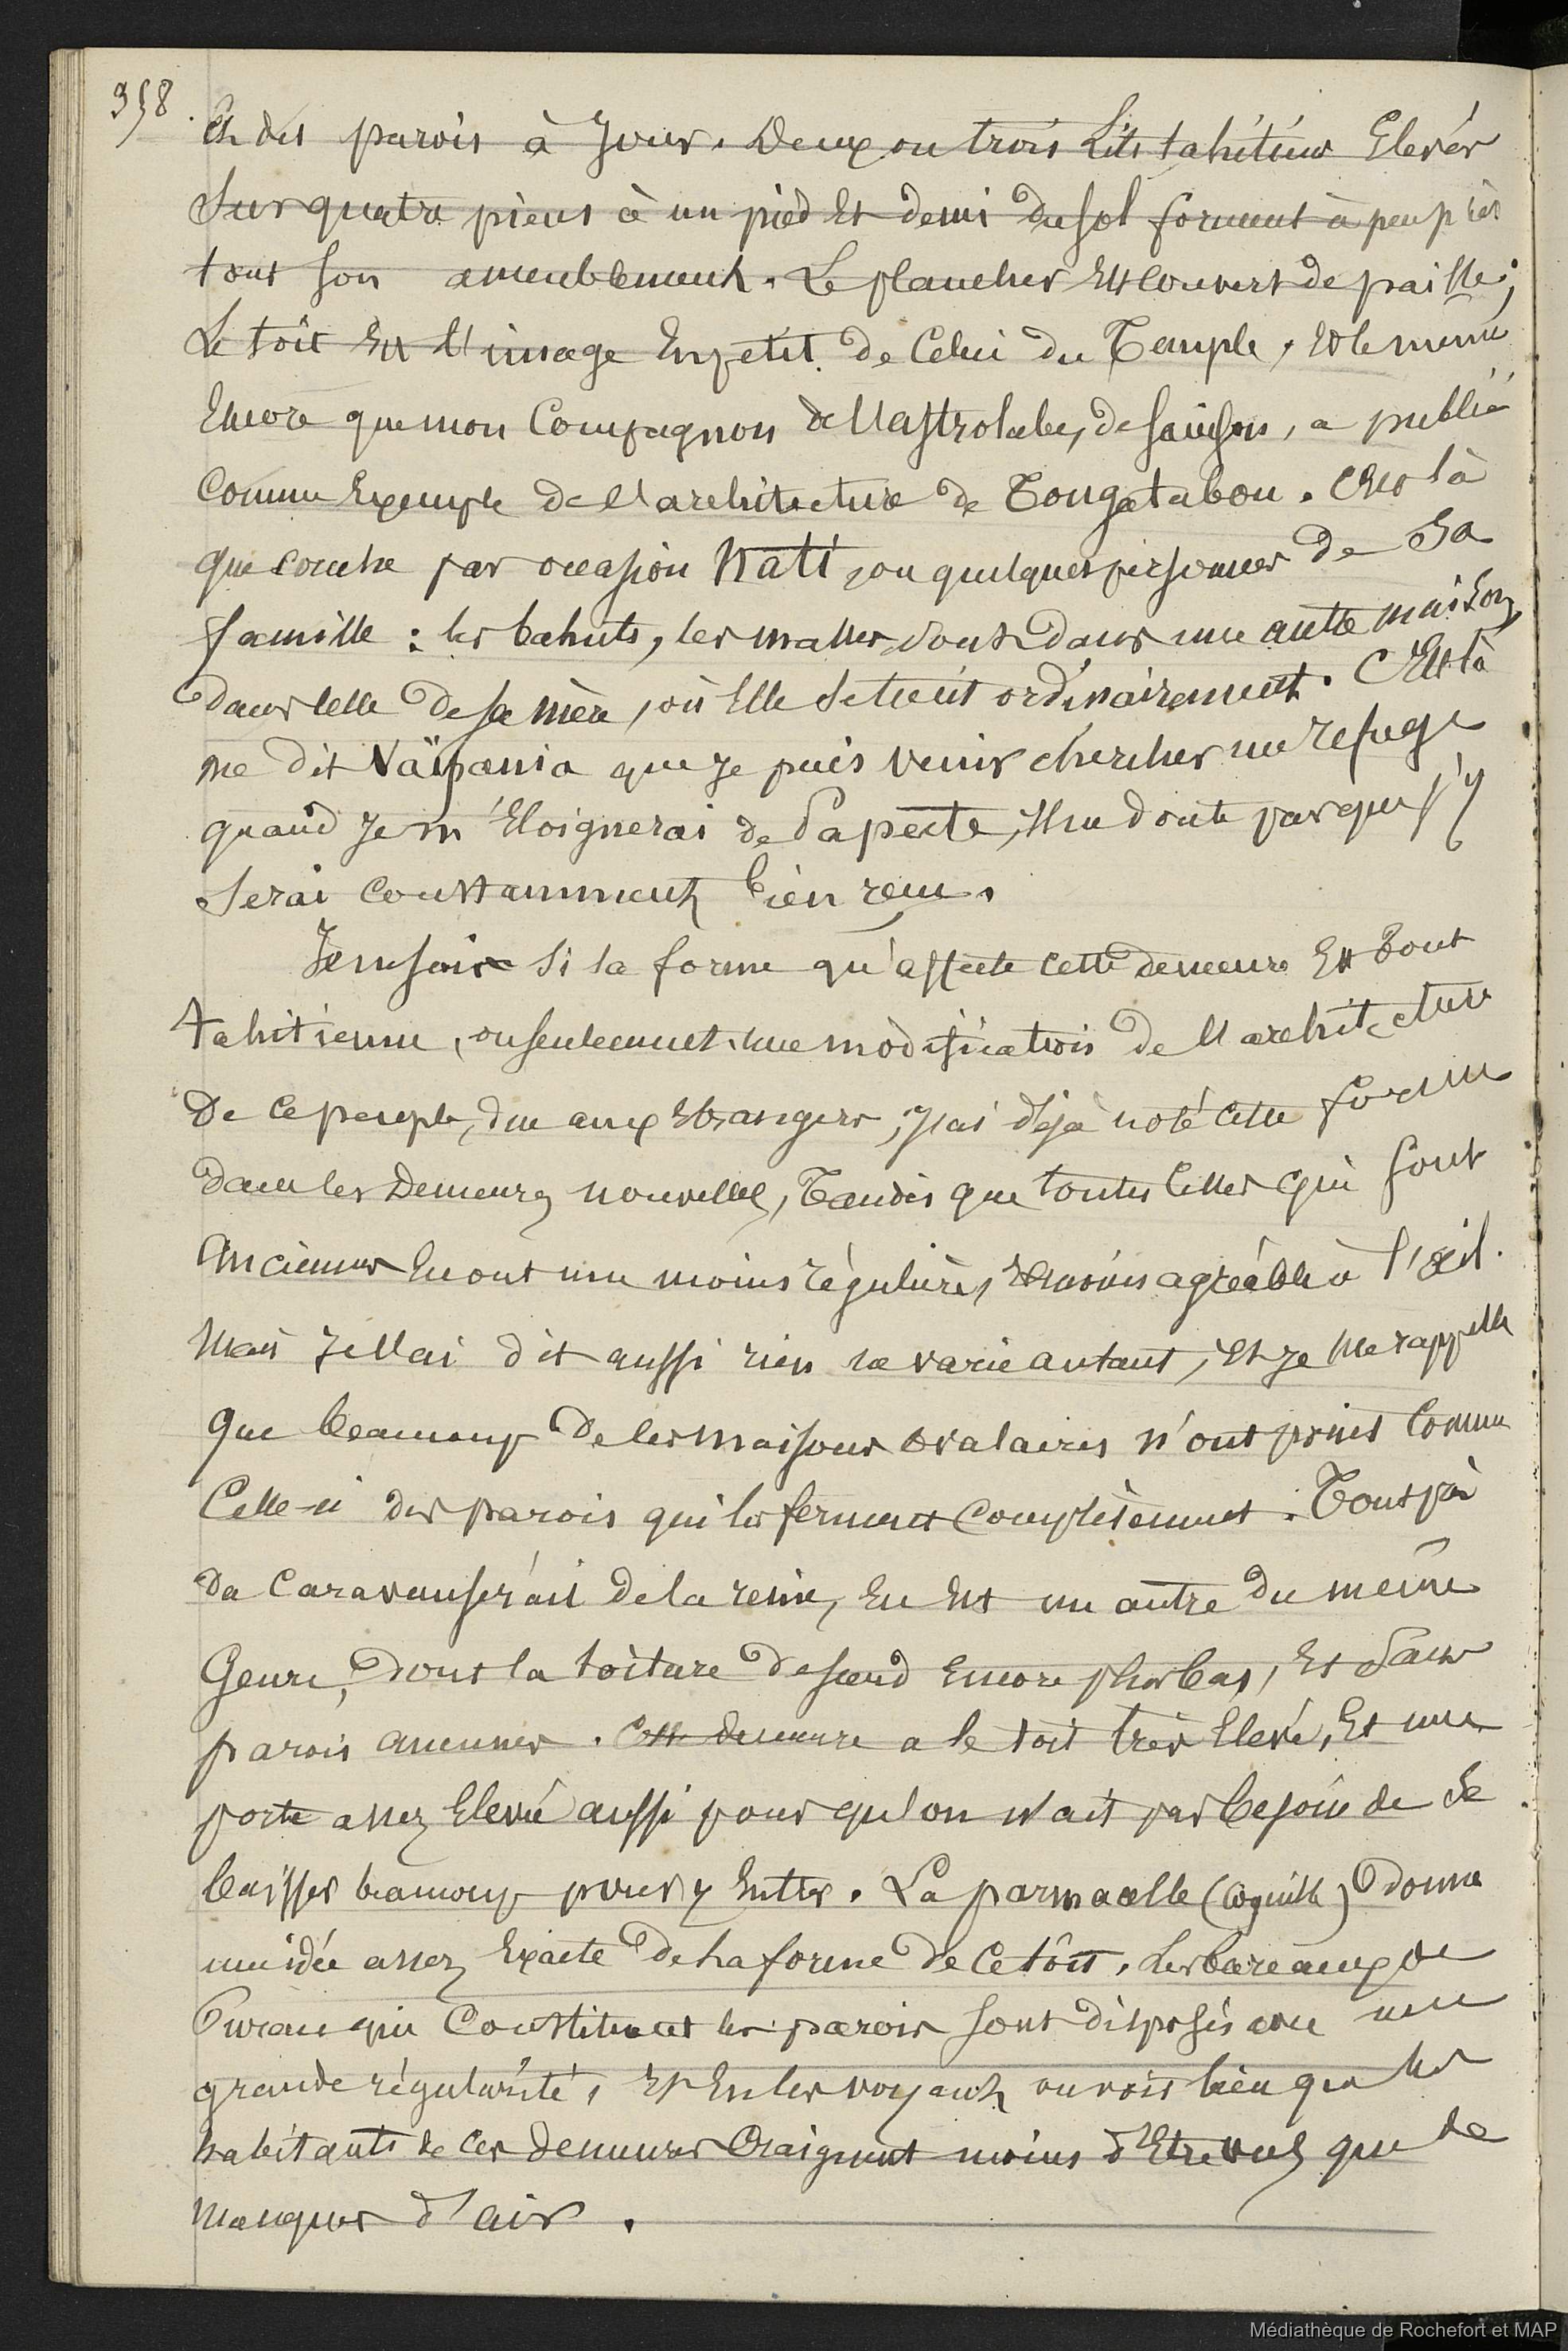 358.
Et des parois à jour. Deux ou trois Lits tahitiens Elevés
Sur quatre pieus à un pied Et demi du sol forment à peu près
tout son ameublement. Le plancher Est Couvert de paille;
Le toit Est l'image En petit de Celui du Temple, Et le même
Encore que mon Compagnon de l'astrolabe, de Sainson, a publié
Comme Exemple de l'architecture de Tongatabou. C'est là
que couche par occasion Nati, ou quelques personnes de Sa
famille : les bahuts, les malles sont dans une autre maison,
dans Celle de sa mère, où Elle se tient ordinairement. C'Est là
me dit Väipania que je puis venir chercher un refuge
quand je m'Eloignerai de Papeete, Il ne doute pas que j'y
Serai Constamment bien reçu.
Je ne sais Si la forme qu'affecte cette demeure Est tout
tahitienne, ou seulement une modification de l'architecture
De Ce peuple, due aux Etrangers ; j'ai déjà noté cette forme
dans les Demeures nouvelles, Tandis que toutes Celles qui sont
Anciennes En ont une moins régulière, Et moins agréable à l'œil.
Mais je l'ai dit aussi rien ne varie autant, Et je me rappelle
que beaucoup de ces maisons ovalaires n'ont point Comme
Celle-ci des parois qui les ferment Complètement. Tout près
Du Caravansérail de la reine, En Est un autre du même
Genre, dont la toiture descend Encore plus bas, Et Sans
parois aucunes. Cette demeure a le toit très Elevé, Et une
porte assez Elevée aussi pour qu'on n'ait pas besoin de se
baisser beaucoup pour y Entrer. La parmacelle (Coquille) donne
une idée assez Exacte de la forme de Ce tôit. Les bareaux de
Purau qui Constituent les parois sont disposés avec une
grande régularité, Et En les voyant on voit bien que les
habitants de Ces demeures Craignent moins d'Etre vus que de
Manquer d'air.
Médiathèque de Rochefort et MAP